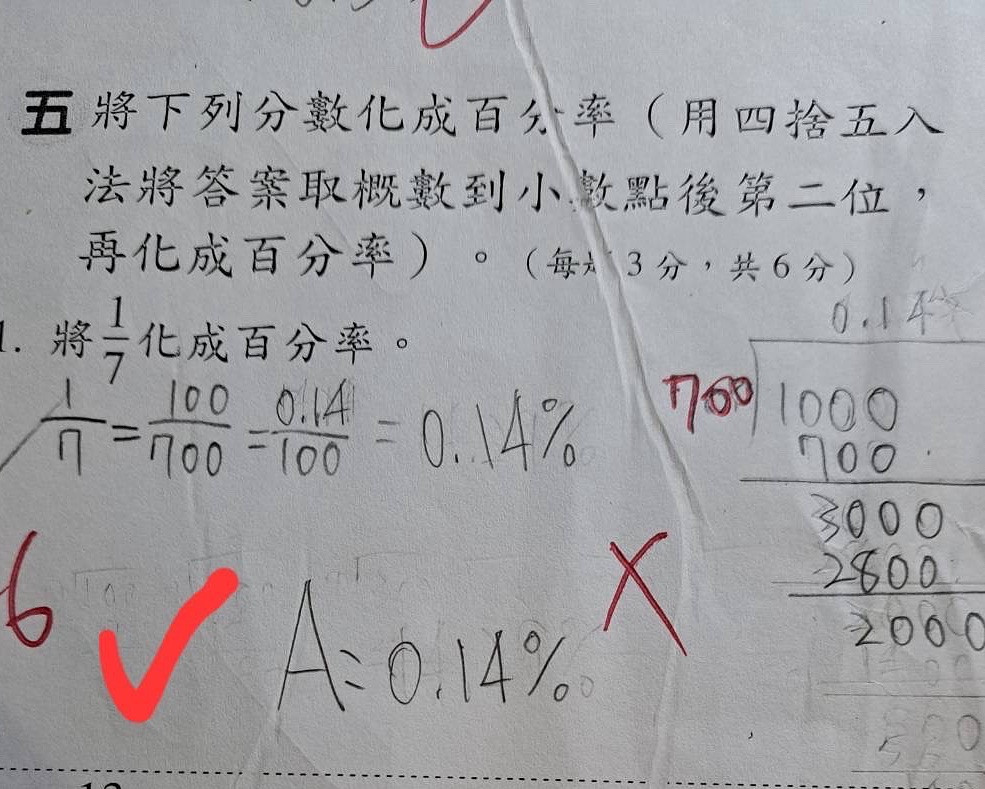 五 將下列分數化成百分率（用四捨五入
法將答案取概數到小數點後第二位，
再化成百分率）。（每題3分，共6分）
1. 將1/7化成百分率。
1/7 = 100/700 = 0.14/100 = 0.14%
A = 0.14%
6
0.14
700 1000
700
3000
2800
2000